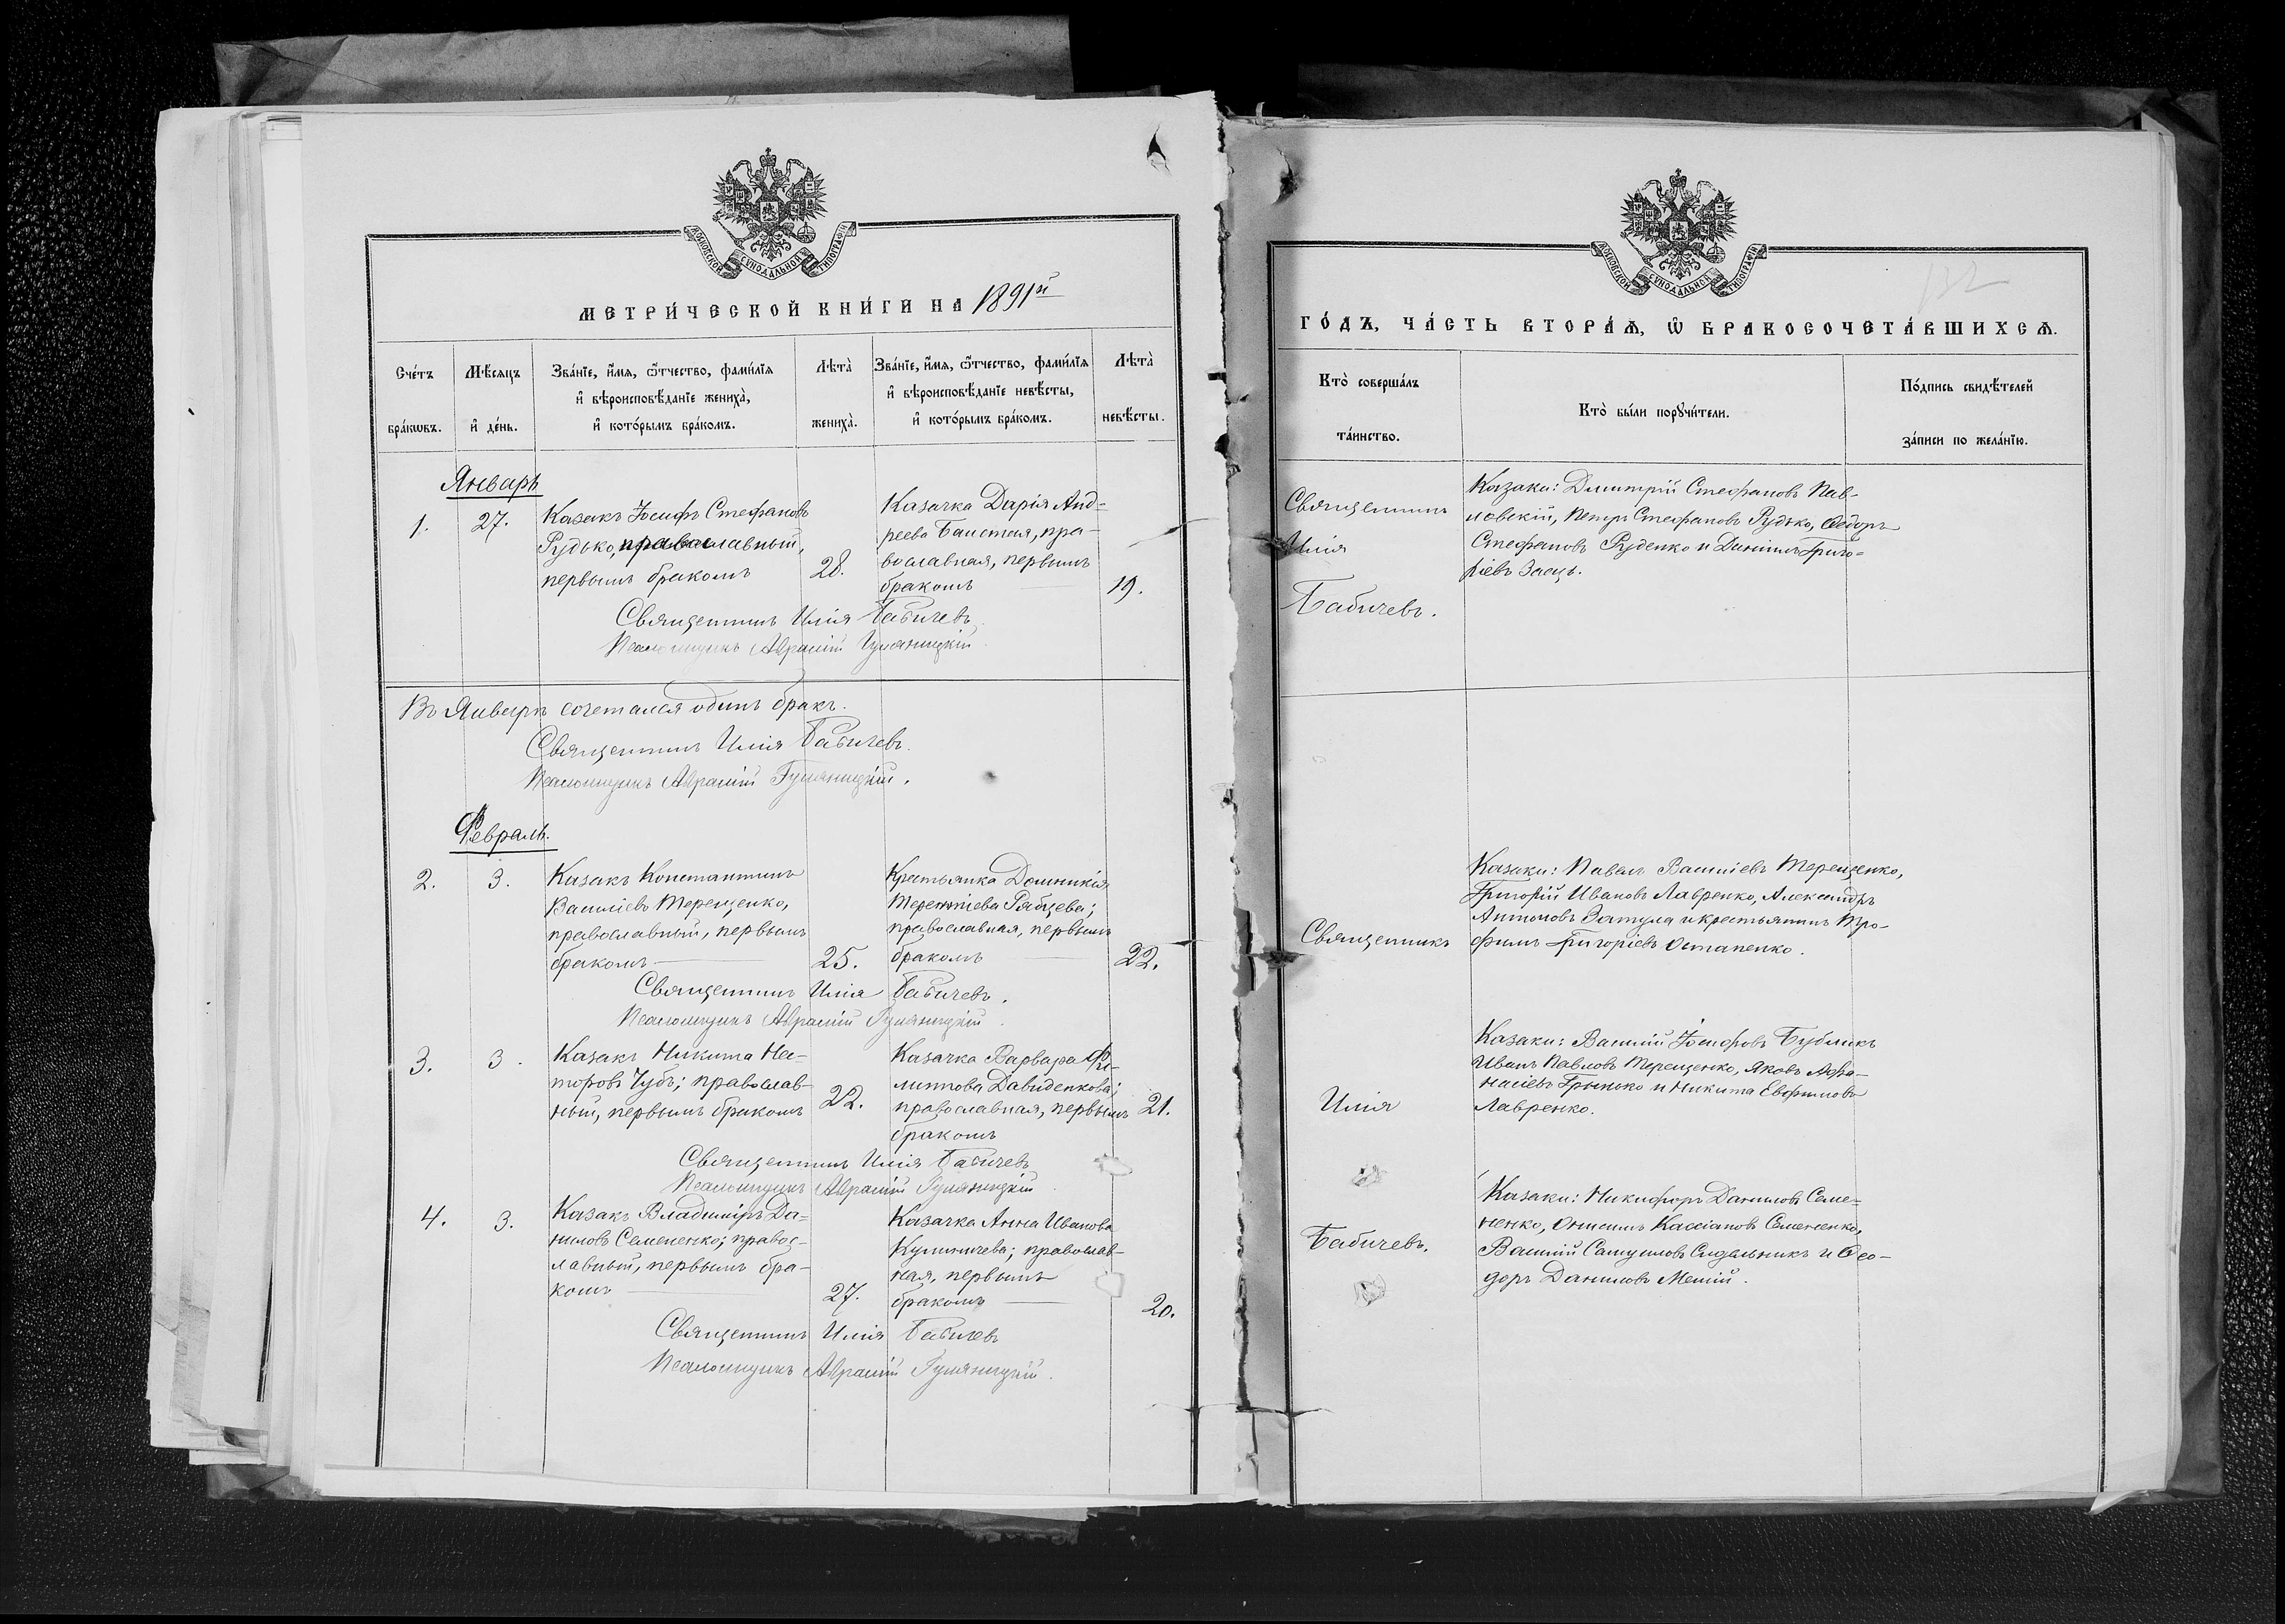 МОСКОВСКОЙ СУНОДАЛЬНОЙ ТИПОГРАФІИ
МЕТРИ́ЧЕСКОЙ КНИ́ГИ НА 1891й
Сче́тъ бра́кѡвъ.
Мѣ́сяцъ и҆ де́нь.
Зва́нїе, и҆́мѧ, ѻ҆́тчество, фами́лїѧ
и҆ вѣроисповѣ́данїе жениха̀,
и҆ кото́рымъ бра́комъ.
Лѣта̀ жениха̀.
Зва́нїе, и҆́мѧ, ѻ҆́тчество, фами́лїѧ
и҆ вѣроисповѣ́данїе невѣ́сты,
и҆ кото́рымъ бра́комъ.
Лѣта̀ невѣ́сты.
Январь
1. 27.
Казакъ Іосифъ Стефановъ
Рудько, православный,
первымъ бракомъ
28.
Казачка Дарія Анд-
реева, пра-
вославная, первымъ
бракомъ
19.
Священникъ Илія Бабичевъ
Псаломщикъ Аврамій Гуляницкій
Въ Январѣ сочетался одинъ бракъ.
Священникъ Илія Бабичевъ.
Псаломщикъ Аврамій Гуляницкій.
Февраль.
2. 3.
Казакъ Константинъ
Василіевъ Терещенко,
православный, первымъ
бракомъ
25.
Крестьянка Домникія
Терентіева Рябцева;
православная, первымъ
бракомъ
22.
Священникъ Илія Бабичевъ.
Псаломщикъ Аврамій Гуляницкій.
3. 3.
Казакъ Никита Нес-
торовъ Чубъ; православ-
ный, первымъ бракомъ
22.
Казачка Варвара Фи-
липпова Давиденкова;
православная, первымъ
бракомъ
21.
Священникъ Илія Бабичевъ
Псаломщикъ Аврамій Гуляницкій
4. 3.
Казакъ Владиміръ Да-
ниловъ Семененко; правос-
лавный, первымъ бра-
комъ
27.
Казачка Анна Иванова
Кулиничева; православ-
ная, первымъ
бракомъ
20.
Священникъ Илія Бабичевъ
Псаломщикъ Аврамій Гуляницкій.
МОСКОВСКОЙ СУНОДАЛЬНОЙ ТИПОГРАФІИ
132
ГО́ДЪ, ЧА́СТЬ ВТОРА́Ѧ, Ѡ҆ БРАКОСОЧЕТА́ВШИХСѦ.
Кто̀ соверша́лъ
та́инство.
Кто̀ бы́ли порꙋчи́тели.
По́дпись свидѣ́телей
за́писи по жела́нїю.
Священникъ
Илія
Бабичевъ.
Казаки: Димитрій Стефановъ Пав-
ловскій, Петръ Стефановъ Рудько, Ѳедоръ
Стефановъ Руденко и Даніилъ Григо-
ріевъ Заецъ.
Священникъ
Илія
Бабичевъ.
Казаки: Павелъ Василіевъ Терещенко,
Григорій Ивановъ Лавренко, Александръ
Антоновъ Затула и крестьянинъ Тро-
фимъ Григоріевъ Остапенко.
Казаки: Василій Іосифовъ Бубликъ
Иванъ Павловъ Терещенко, Яковъ Афа-
насіевъ Гринько и Никита Евфимовъ
Лавренко.
Казаки: Никифоръ Даниловъ Семе-
ненко, Онисимъ Кассіановъ Семененко,
Василій Самуиловъ Сидельникъ и Ѳео-
доръ Даниловъ